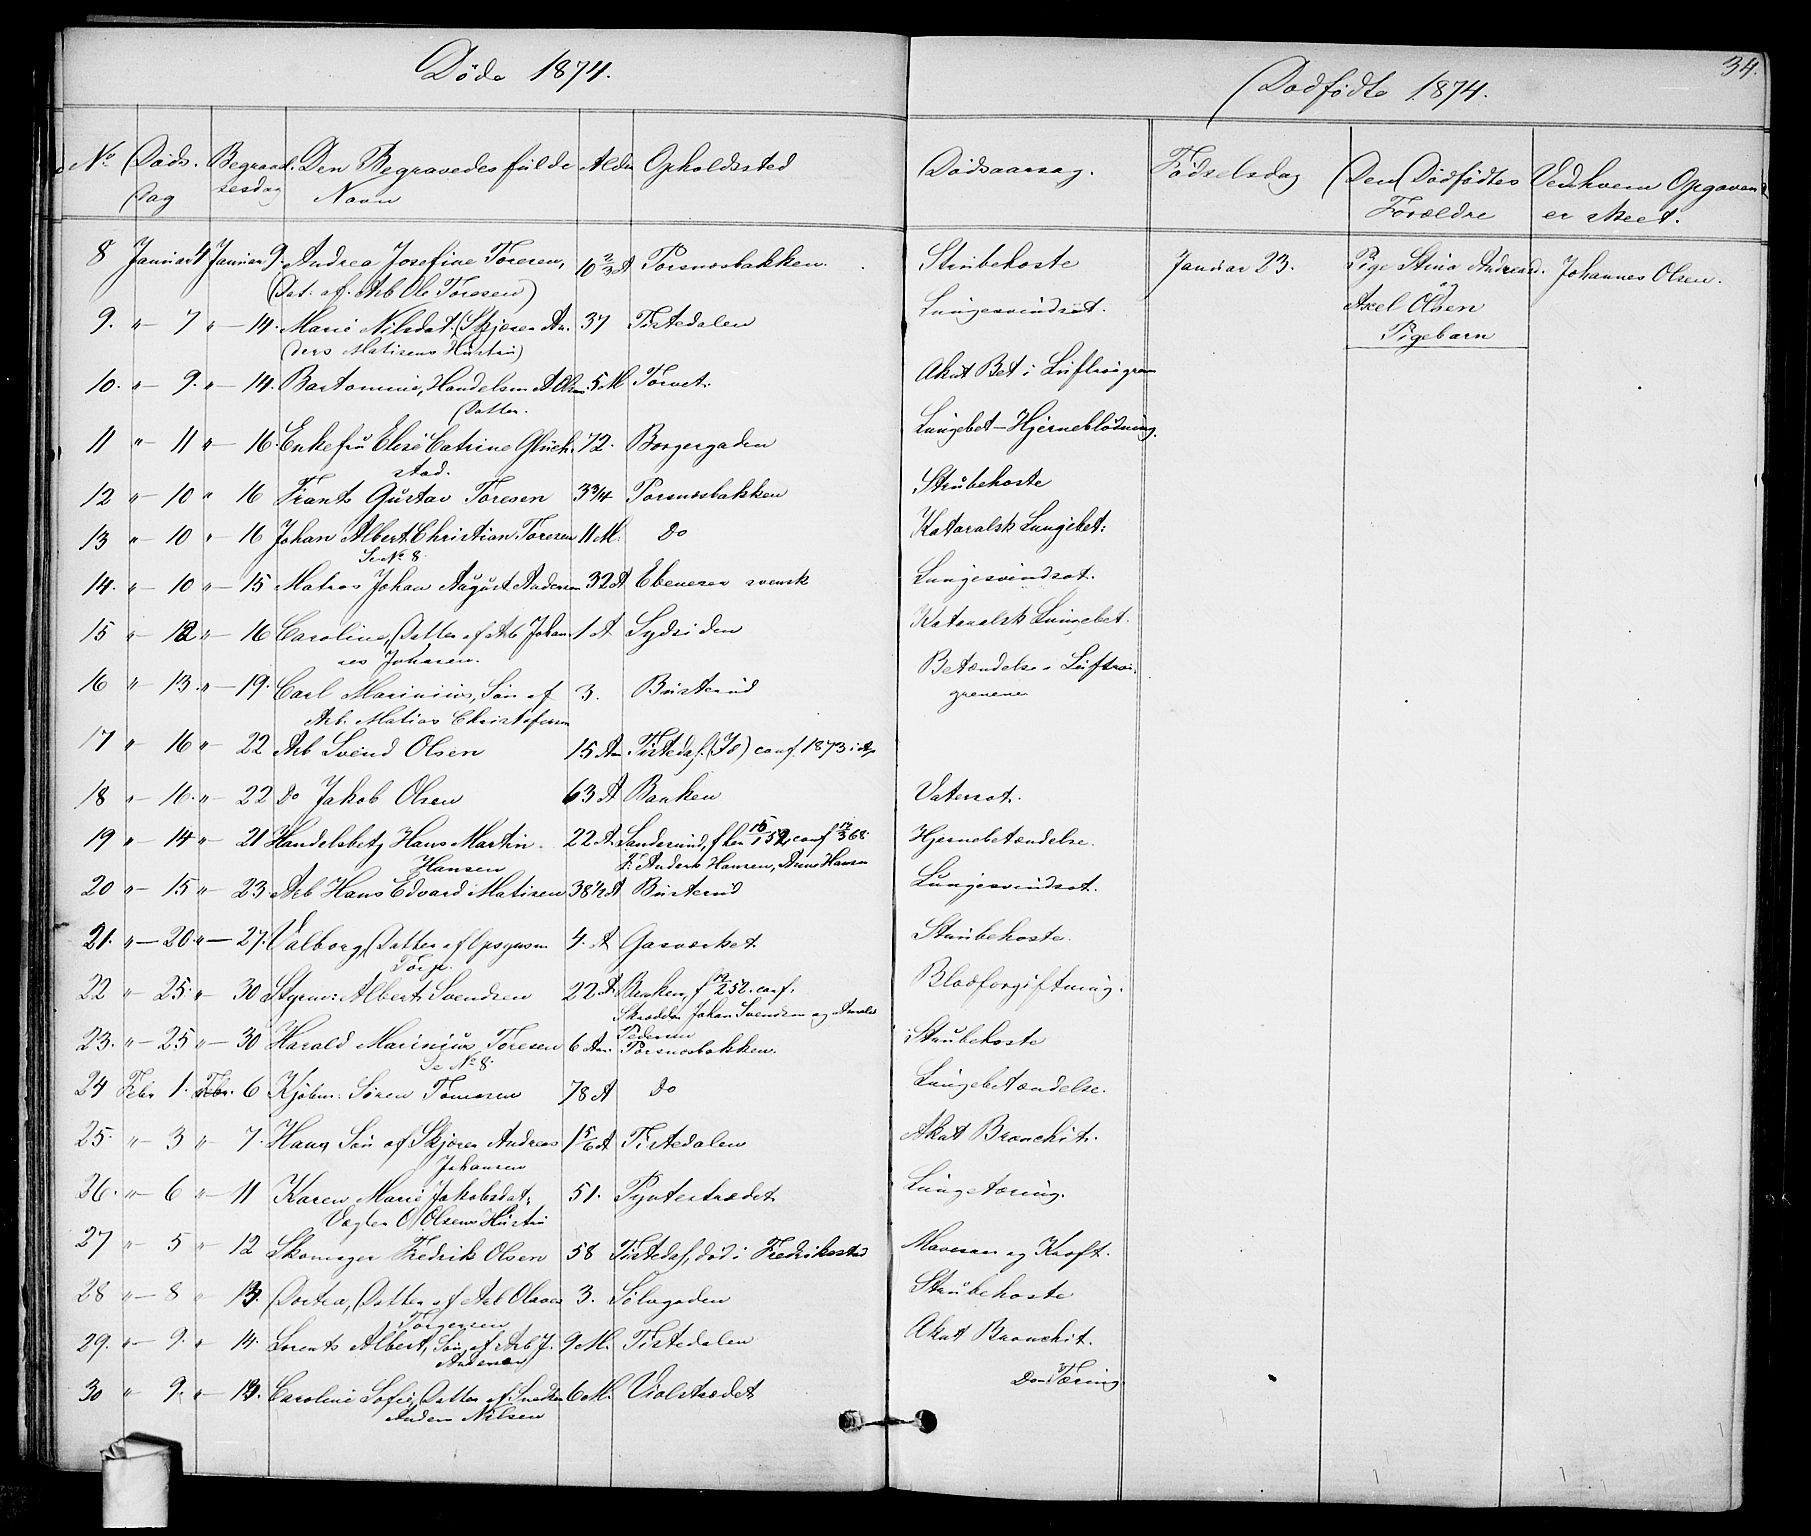 Døde 1874.
No Døds. Begravel. Den Begravedes fulde Alder Opholdssted
dag sesdag Navn
8 Januar 4 Januar 9. Andrea Josefine Toresen, 10 2/3 A Porsnesbakken.
(Dat. af. Arb Ole Toresen)
9. " 7 " 14. Marie Nilsdat. (Skjører An- 37 Tistedalen
ders Matisens Hustru)
10. " 9. " 14. Handelsm 5 M. Torvet.
Datter.
11 " 11 " 16. Enkefru Elise Catrine Glück- 72. Borgergaden
stad.
12 " 10 " 16 Frants Gustav Toresen 3 3/4 Porsnesbakken
13 " 10 " 16 Johan Albert Christian Toresen 11 M. Do
Se No 8.
14. " 10 " 15 Matros Johan August Andersen 32 A Ebeneser svensk
15 " 12 " 16 Caroline, Datter af Arb Johan- 1 A Sydsiden
nes Johansen.
16 " 13. " 19. Carl Marinius, Søn af 3. Busterud
Arb. Matias Christofersen
17 " 16 " 22 Arb Svend Olsen 15 Aar Tistedal. conf. 1873
18 " 16. " 22 Do Jakob Olsen 63 A Banken
19 " 14 " 21 Handelsbetj Hans Martin 22 A. conf 12/3 68.
Hansen F. Anders Hansen, Anne Hansen
20 " 15 " 23. Arb Hans Edvard Matisen 38 1/2 A Busterud
21. " 20. " 27. Valborg, Datter af Torp. 4. A Gasværket
22 " 25. " 30 Styrm: Albert Svendsen 22 A. Banken, f 12/2 52. conf.
Skrædder Johan Svendsen og
Pedersen
23. " 25 " 30 Harald Marinius Toresen 6 Aar. Porsnesbakken.
Se No 8.
24 Febr 1. Febr. 6 Kjøbm: Søren Tomesen 78 A Do
25. " 3 " 7. Hans, Søn af Skjører Andreas 1 5/6 A Tistedalen
Johansen
26. " 6 " 11 Karen Marie Jakobsdat. 51. Pynterstrædet
Vægter O Olsens Hustru
27 " 5 " 12 Skomager Fredrik Olsen 58 Tistedal, død i Fredrikstad
28 " 8 " 13. Dortea, Datter af Arb Olaves 3. Sølvgaden
Torgersen
29. " 9. " 14. Lorents Albert, Søn af Arb J. 9 M. Tistedalen
Andersen
30 " 9. " 13. Caroline Sofie, Datter af Snedker 6 M. Violstrædet
Anders Nilsen
34.
Dødfødte 1874.
Dødsaarsag. Fødselsdag Den Dødfødtes Ved hvem Opgaven
Forældre er skeet.
Strubehoste Januar 23. Pige Stina Andreasd. Johannes Olsen.
Lungesvindsot. Axel Olsen
Pigebarn
Akut Bet i Luftrørsgren
Lungebet - Hjerneblødning.
Strubehoste
Kataralsk Lungebet:
Lungesvindsot.
Kataralsk Lungebet.
Betændelse i Luftrør-
grenene
Vatersot.
Hjernebetændelse.
Lungesvindsot.
Strubehoste.
Blodforgiftning.
Strubehoste
Lungebetændelse.
Akut Bronchit.
Lungetæring.
Mavesaar og Kræft.
Strubehoste
Akut Bronchit.
Do Tæring.